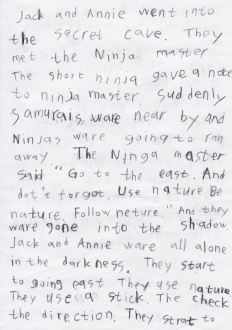 Jack and Annie went into
the secret cave. They
met the Ninja master
The short ninja gave a note
to ninja master. Suddenly
Samurais ware near by and
Ninjas ware going to ran
away. The Nynga master
said "Go to the east. And
dot't forgot. Use nature Be
nature. Follow neture." And they
ware gone into the shadow.
Jack and Annie ware all alone
in the darkness. They start
to going east They use nature
They use a stick. The check
the direction. They strat to